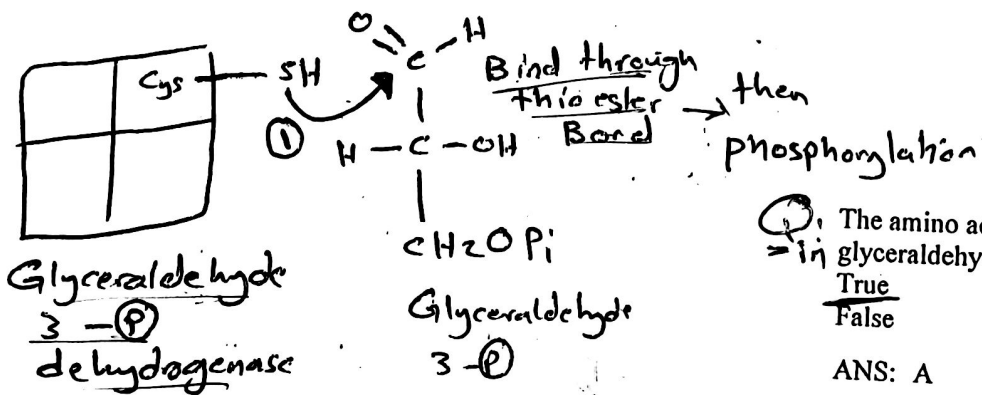 Cys — SH
①
O
C
H
H — C — OH
CH2O Pi
Bind through
thio ester
Bond
→ then
phosphorylation
Glyceraldehyde
3 - Ⓟ
dehydrogenase
Glyceraldehyde
3 - Ⓟ
Q. The amino ac
= in glyceraldehy
True
False
ANS: A